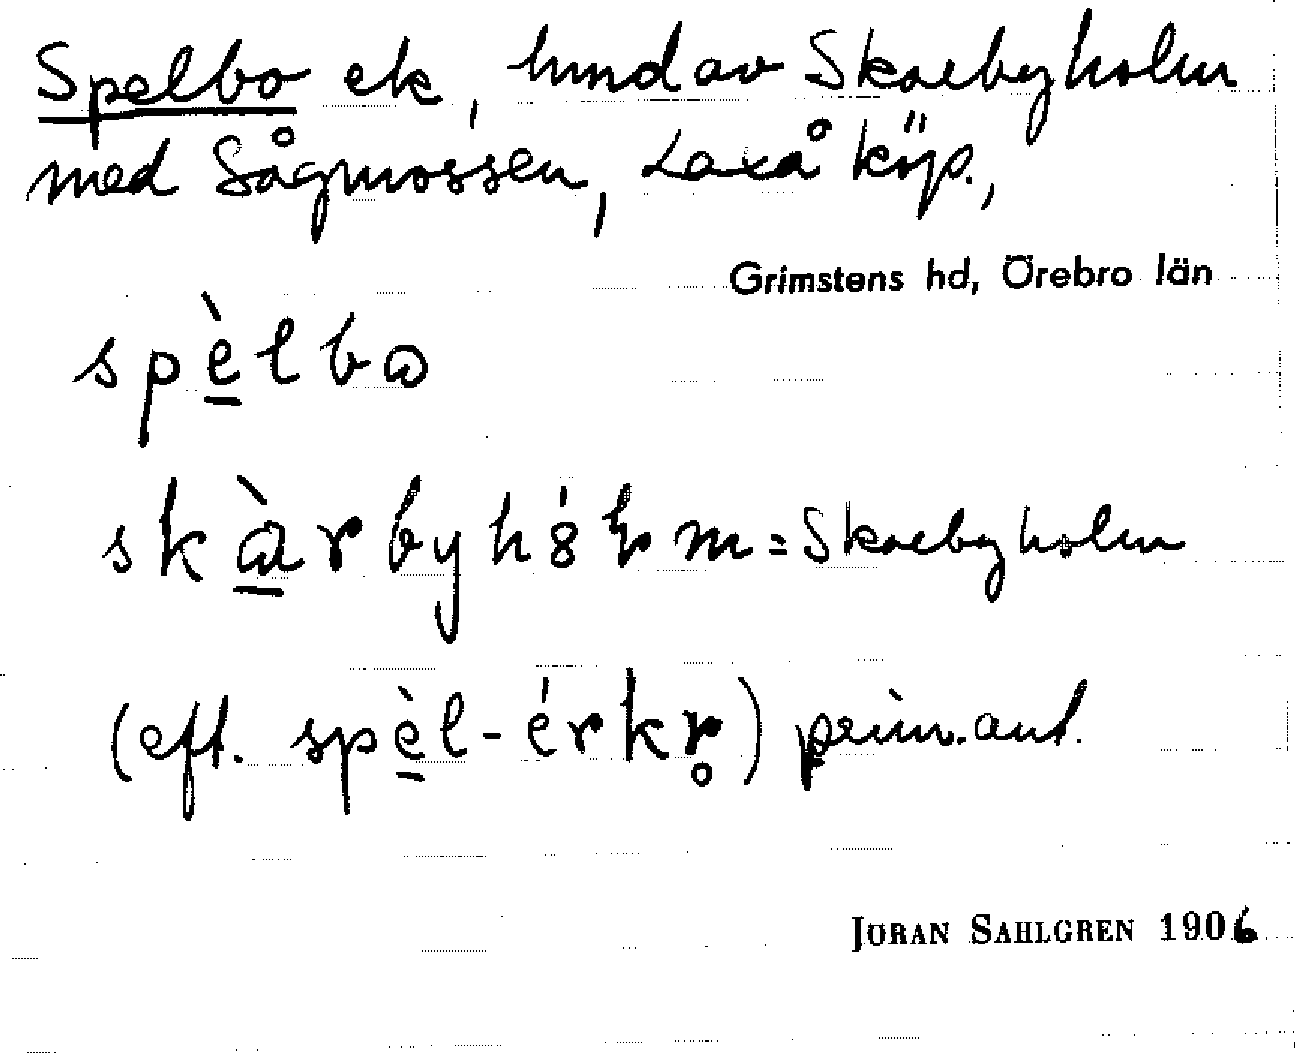 Spelbo ek, hmd av Skarbyholm
med Sågmossen, Laxå köp.,
Grimstens hd, Örebro län
spè̠lbɷ
skà̠rbyh8́ɫm = Skarbyholm
(eft. spè̠l-érkr̥) prim. ant.
JÖRAN SAHLGREN 1906